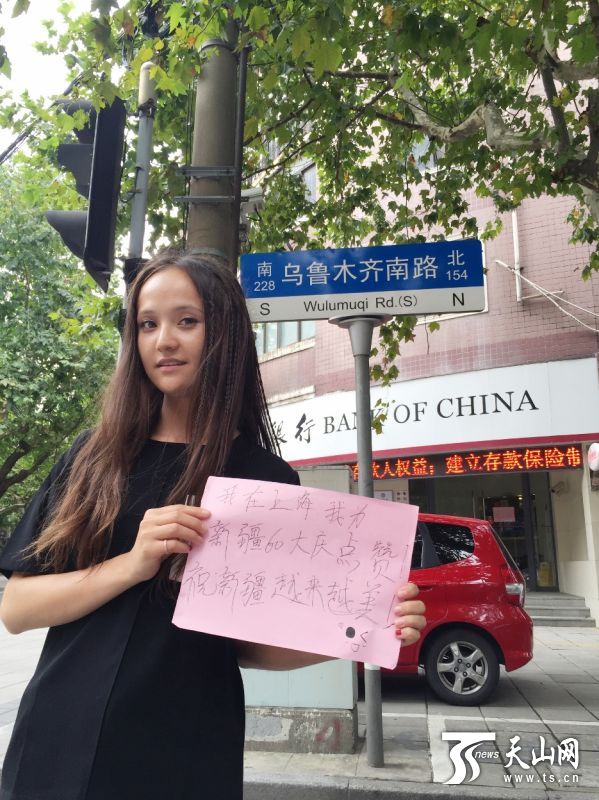 南 乌鲁木齐南路 北
228 154
S Wulumuqi Rd.(S) N
银行 BANK OF CHINA
款人权益；建立存款保险制
我在上海 我为
新疆60大庆点赞
祝新疆越来越美
TS news 天山网
www.ts.cn